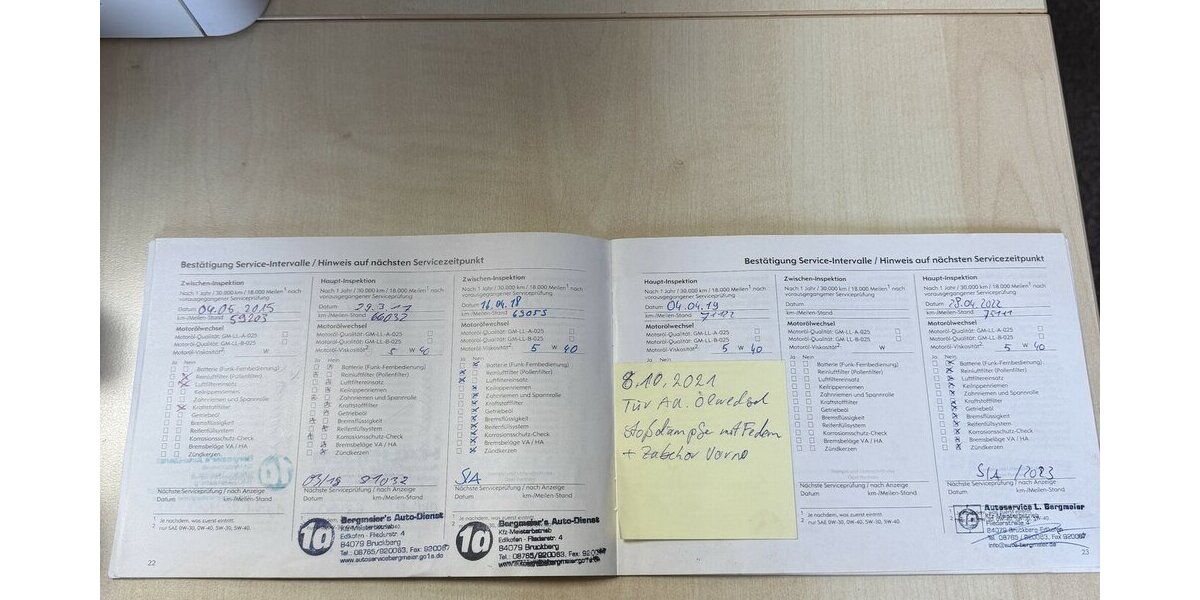 Bestätigung Service-Intervalle / Hinweis auf nächsten Servicezeitpunkt
Zwischen-Inspektion
Nach 1 Jahr / 30.000 km / 18.000 Meilen¹ nach
vorausgegangener Serviceprüfung
Datum 04.05.2015
km-/Meilen-Stand 59205
Motorölwechsel
Motoröl-Qualität: GM-LL-A-025
Motoröl-Qualität: GM-LL-B-025
Motoröl-Viskosität² W
Ja Nein
Batterie (Funk-Fernbedienung)
Reinluftfilter (Pollenfilter)
Luftfiltereinsatz
Keilrippenriemen
Zahnriemen und Spannrolle
Kraftstofffilter
Getriebeöl
Bremsflüssigkeit
Reifenfüllsystem
Korrosionsschutz-Check
Bremsbeläge VA / HA
Zündkerzen
Nächste Serviceprüfung / nach Anzeige
Datum km-/Meilen-Stand
¹ Je nachdem, was zuerst eintritt.
² nur SAE 0W-30, 0W-40, 5W-30, 5W-40.
22
Haupt-Inspektion
Nach 1 Jahr / 30.000 km / 18.000 Meilen¹ nach
vorausgegangener Serviceprüfung
Datum 29.3.17
km-/Meilen-Stand 66032
Motorölwechsel
Motoröl-Qualität: GM-LL-A-025
Motoröl-Qualität: GM-LL-B-025
Motoröl-Viskosität² 5 W 40
Ja Nein
Batterie (Funk-Fernbedienung)
Reinluftfilter (Pollenfilter)
Luftfiltereinsatz
Keilrippenriemen
Zahnriemen und Spannrolle
Kraftstofffilter
Getriebeöl
Bremsflüssigkeit
Reifenfüllsystem
Korrosionsschutz-Check
Bremsbeläge VA / HA
Zündkerzen
03/18 81032
Nächste Serviceprüfung / nach Anzeige
Datum km-/Meilen-Stand
1a Bergmeier's Auto-Dienst
Kfz-Meisterbetrieb
Edlkofen - Fliederstr. 4
84079 Bruckberg
Tel.: 08765/920063, Fax: 920067
www.autoservicebergmeier.go1a.de
Zwischen-Inspektion
Nach 1 Jahr / 30.000 km / 18.000 Meilen¹ nach
vorausgegangener Serviceprüfung
Datum 16.04.18
km-/Meilen-Stand 63055
Motorölwechsel
Motoröl-Qualität: GM-LL-A-025
Motoröl-Qualität: GM-LL-B-025
Motoröl-Viskosität² 5 W 40
Ja Nein
Batterie (Funk-Fernbedienung)
Reinluftfilter (Pollenfilter)
Luftfiltereinsatz
Keilrippenriemen
Zahnriemen und Spannrolle
Kraftstofffilter
Getriebeöl
Bremsflüssigkeit
Reifenfüllsystem
Korrosionsschutz-Check
Bremsbeläge VA / HA
Zündkerzen
SIA
Nächste Serviceprüfung / nach Anzeige
Datum km-/Meilen-Stand
1a Bergmeier's Auto-Dienst
Kfz-Meisterbetrieb
Edlkofen - Fliederstr. 4
84079 Bruckberg
Tel.: 08765/920063, Fax: 920067
Bestätigung Service-Intervalle / Hinweis auf nächsten Servicezeitpunkt
Haupt-Inspektion
Nach 1 Jahr / 30.000 km / 18.000 Meilen¹ nach
vorausgegangener Serviceprüfung
Datum 04.04.19
km-/Meilen-Stand 71122
Motorölwechsel
Motoröl-Qualität: GM-LL-A-025
Motoröl-Qualität: GM-LL-B-025
Motoröl-Viskosität² 5 W 40
Ja Nein
8.10.2021
Tür Ad. Ölwechsel
Stoßdämpfe mit Federn
+ Zubehör Vorne
Zwischen-Inspektion
Nach 1 Jahr / 30.000 km / 18.000 Meilen¹ nach
vorausgegangener Serviceprüfung
Datum
km-/Meilen-Stand
Motorölwechsel
Motoröl-Qualität: GM-LL-A-025
Motoröl-Qualität: GM-LL-B-025
Motoröl-Viskosität² W
Ja Nein
Batterie (Funk-Fernbedienung)
Reinluftfilter (Pollenfilter)
Luftfiltereinsatz
Keilrippenriemen
Zahnriemen und Spannrolle
Kraftstofffilter
Getriebeöl
Bremsflüssigkeit
Reifenfüllsystem
Korrosionsschutz-Check
Bremsbeläge VA / HA
Zündkerzen
Nächste Serviceprüfung / nach Anzeige
Datum km-/Meilen-Stand
¹ Je nachdem, was zuerst eintritt.
² nur SAE 0W-30, 0W-40, 5W-30, 5W-40.
Haupt-Inspektion
Nach 1 Jahr / 30.000 km / 18.000 Meilen¹ nach
vorausgegangener Serviceprüfung
Datum 28.04.2022
km-/Meilen-Stand 75111
Motorölwechsel
Motoröl-Qualität: GM-LL-A-025
Motoröl-Qualität: GM-LL-B-025
Motoröl-Viskosität² 5 W 40
Ja Nein
Batterie (Funk-Fernbedienung)
Reinluftfilter (Pollenfilter)
Luftfiltereinsatz
Keilrippenriemen
Zahnriemen und Spannrolle
Kraftstofffilter
Getriebeöl
Bremsflüssigkeit
Reifenfüllsystem
Korrosionsschutz-Check
Bremsbeläge VA / HA
Zündkerzen
SIA /2023
Nächste Serviceprüfung / nach Anzeige
Datum km-/Meilen-Stand
Autoservice L. Bergmeier
Fliederstraße 4
84079 Bruckberg Edlkofen
Tel. 08765 / 920063 Fax 920067
info@auto-bergmeier.de
23